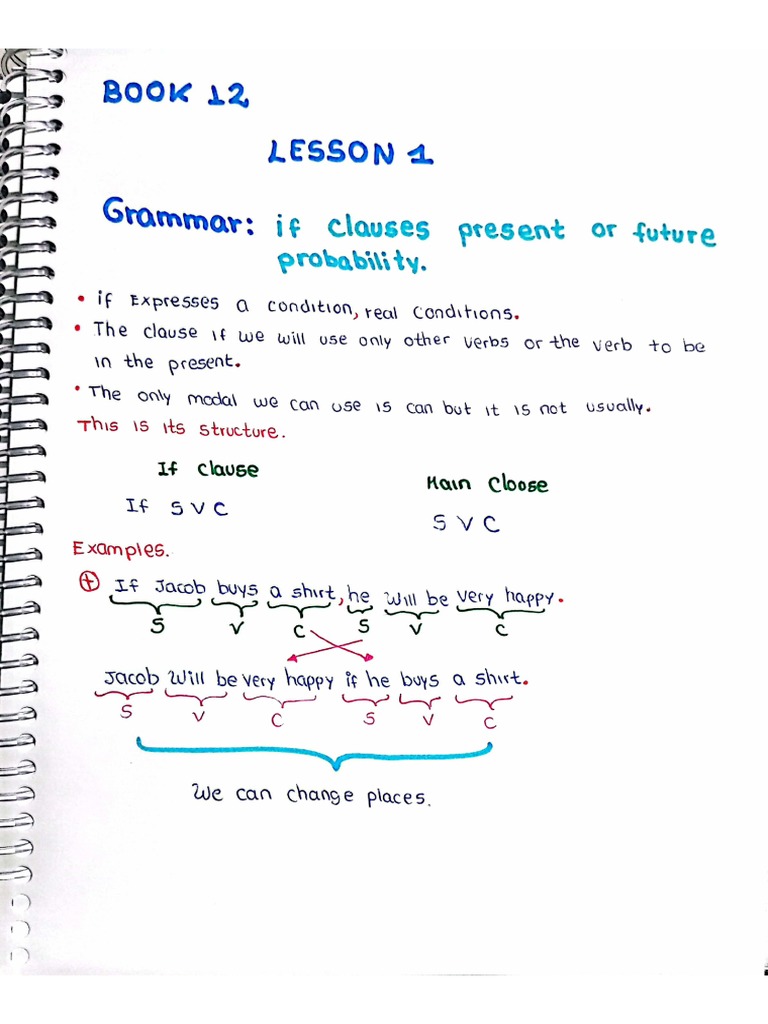 BOOK 12
LESSON 1
Grammar: if clauses present or future
probability.
• if Expresses a condition, real conditions.
• The clause if we will use only other verbs or the verb to be
in the present.
• The only modal we can use is can but it is not usually.
This is its structure.
If clause
Main Cloose
If S V C
S V C
Examples.
+ If Jacob buys a shirt, he will be very happy.
S V C S V C
Jacob will be very happy if he buys a shirt.
S V C S V C
We can change places.